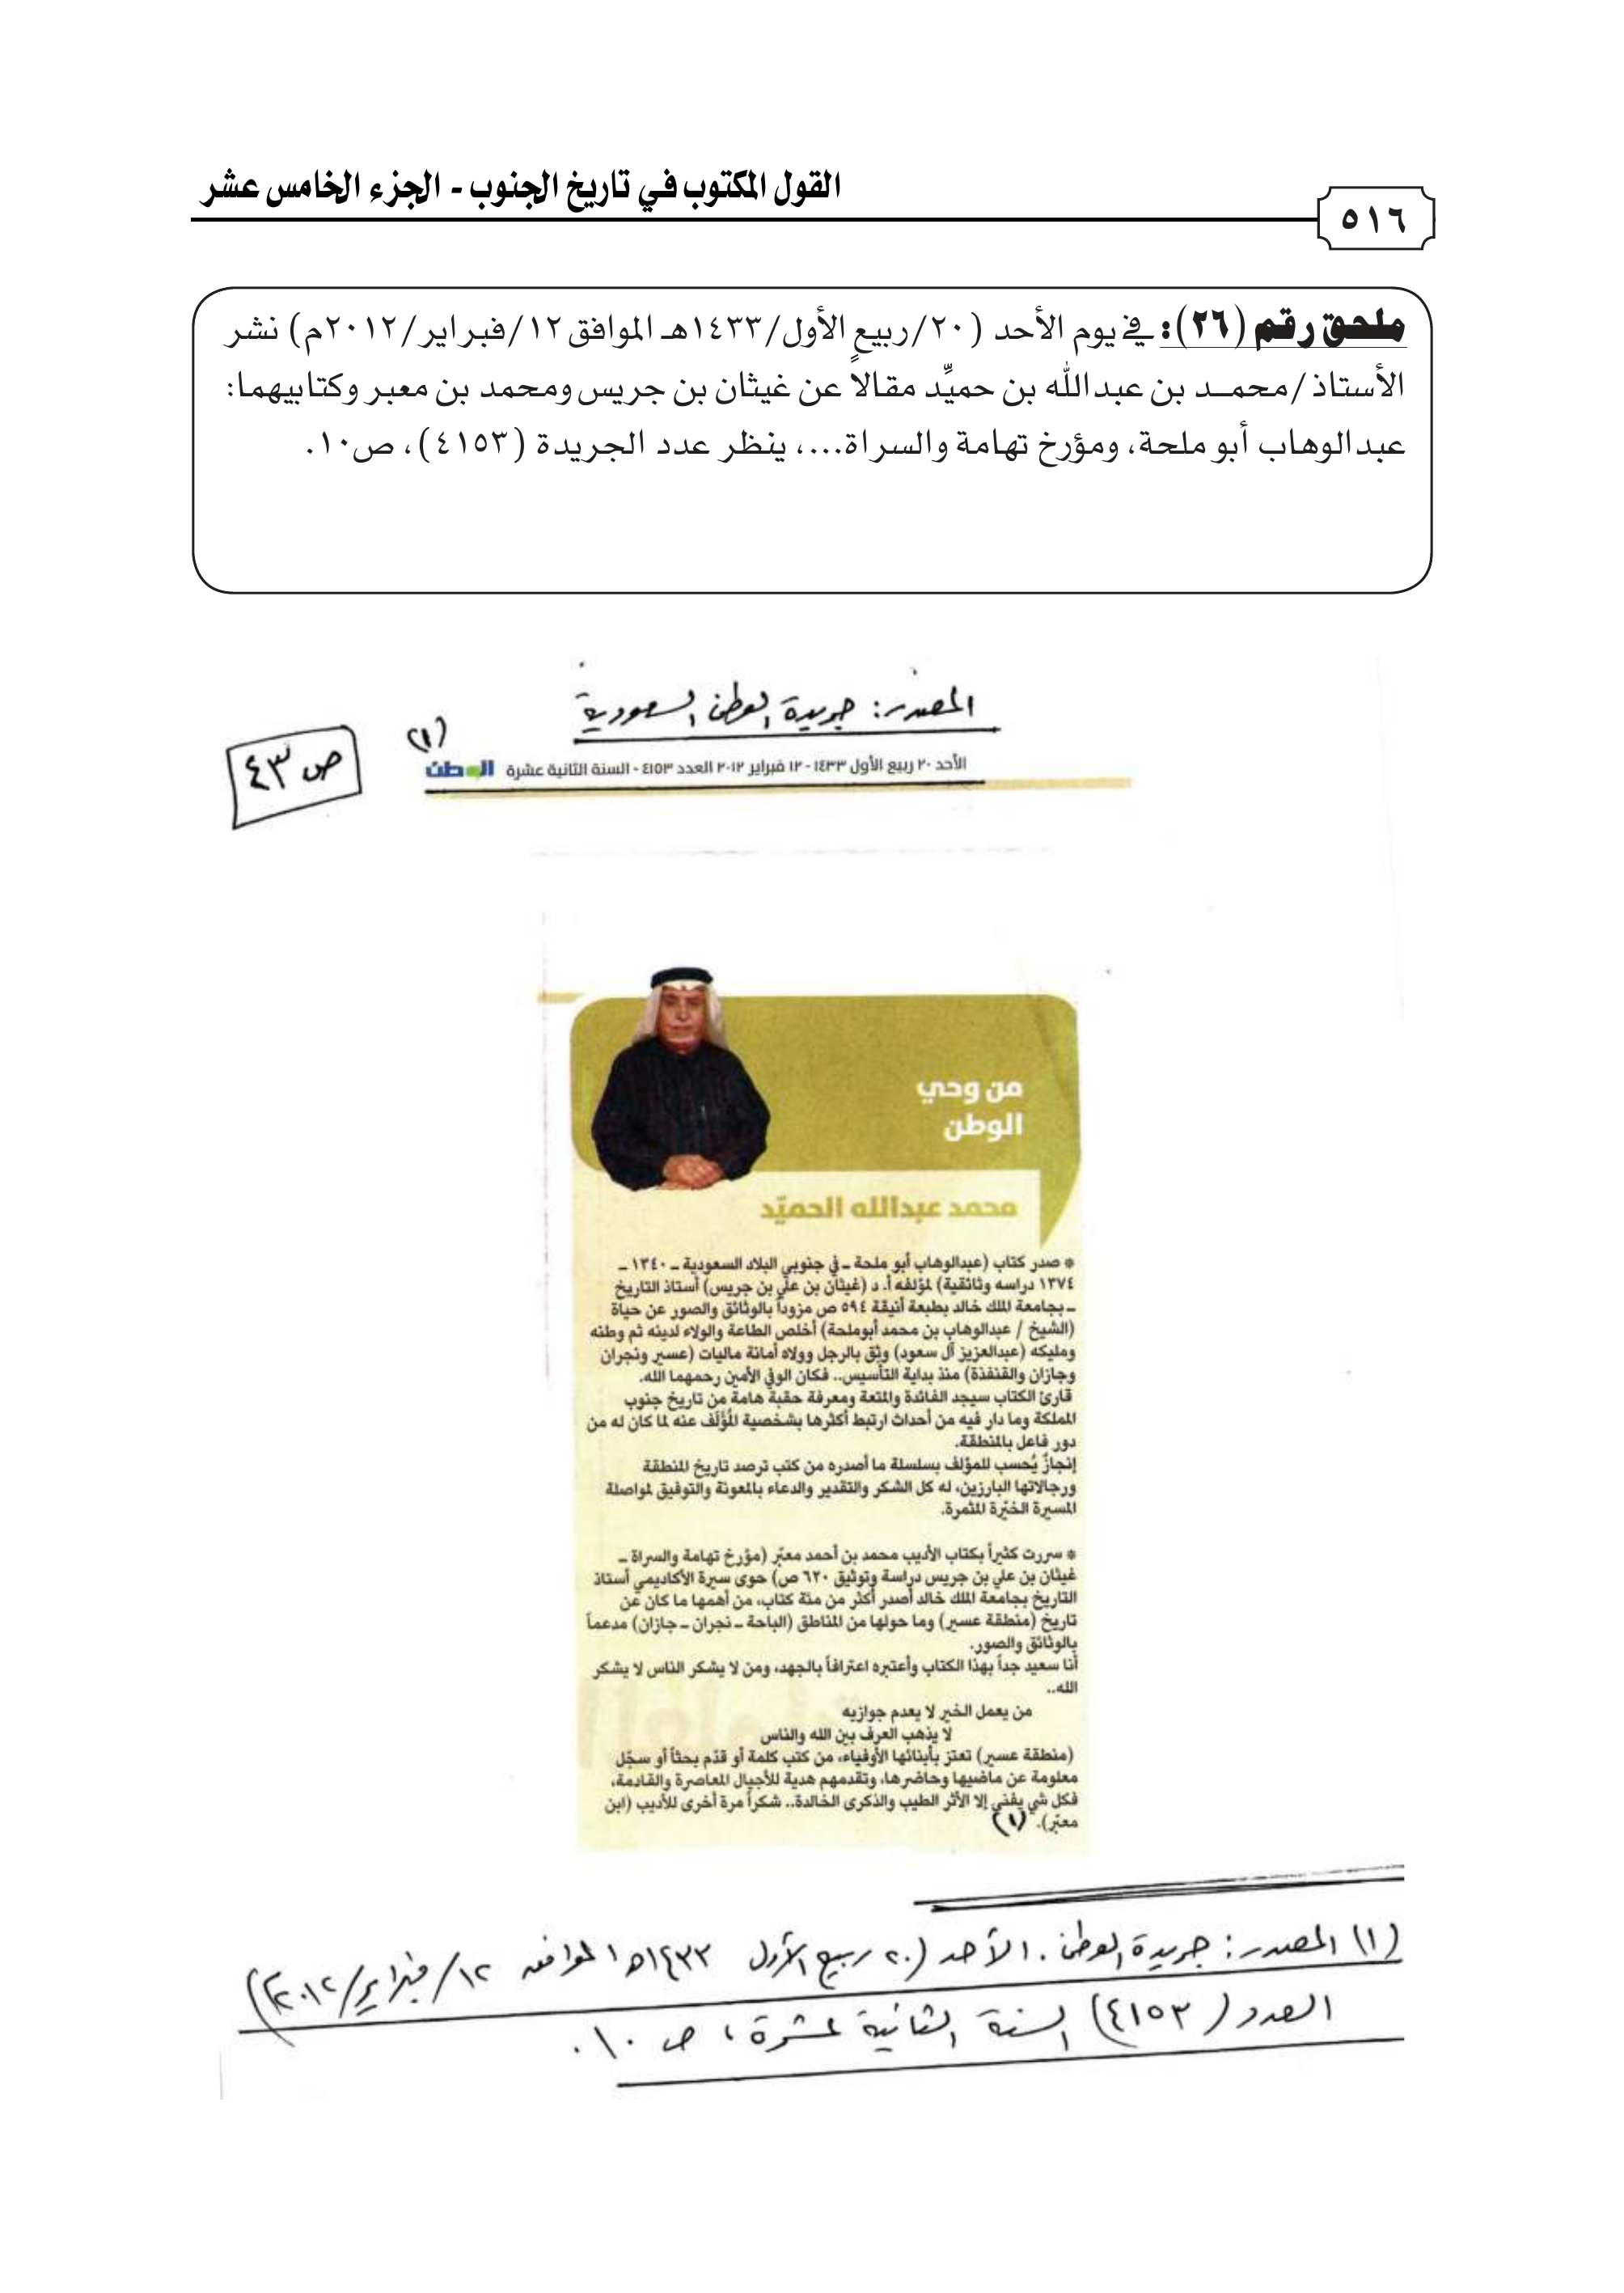 القول المكتوب في تاريخ الجنوب - الجزء الخامس عشر
٥١٦
ملحق رقم (٢٦): في يوم الأحد (٢٠/ربيع الأول/١٤٣٣هـ الموافق ١٢/فبراير/٢٠١٢م) نشر
الأستاذ/محمـد بن عبدالله بن حميِّد مقالاً عن غيثان بن جريس ومحمد بن معبر وكتابيهما:
عبدالوهاب أبو ملحة، ومؤرخ تهامة والسراة...، ينظر عدد الجريدة (٤١٥٣)، ص١٠.
المصدر: جريدة الوطن السعودية
(١)
ص ٤٣
الأحد ٢٠ ربيع الأول ١٤٣٣ - ١٢ فبراير ٢٠١٢ العدد ٤١٥٣ - السنة الثانية عشرة الوطن
من وحي
الوطن
محمد عبدالله الحميّد
* صدر كتاب (عبدالوهاب أبو ملحة ـ في جنوبي البلاد السعودية ـ ١٣٤٠ ـ
١٣٧٤ دراسه وثائقية) لمؤلفه أ. د (غيثان بن علي بن جريس) أستاذ التاريخ
ـ بجامعة الملك خالد بطبعة أنيقة ٥٩٤ ص مزوداً بالوثائق والصور عن حياة
(الشيخ / عبدالوهاب بن محمد أبوملحة) أخلص الطاعة والولاء لدينه ثم وطنه
ومليكه (عبدالعزيز آل سعود) وثق بالرجل وولاه أمانة ماليات (عسير ونجران
وجازان والقنفذة) منذ بداية التأسيس.. فكان الوفي الأمين رحمهما الله.
قارئ الكتاب سيجد الفائدة والمتعة ومعرفة حقبة هامة من تاريخ جنوب
المملكة وما دار فيه من أحداث ارتبط أكثرها بشخصية المُؤَلَّف عنه لما كان له من
دور فاعل بالمنطقة.
إنجازٌ يُحسب للمؤلف بسلسلة ما أصدره من كتب ترصد تاريخ المنطقة
ورجالاتها البارزين، له كل الشكر والتقدير والدعاء بالمعونة والتوفيق لمواصلة
المسيرة الخيّرة المثمرة.
* سررت كثيراً بكتاب الأديب محمد بن أحمد معبّر (مؤرخ تهامة والسراة ـ
غيثان بن علي بن جريس دراسة وتوثيق ٦٢٠ ص) حوى سيرة الأكاديمي أستاذ
التاريخ بجامعة الملك خالد أصدر أكثر من مئة كتاب، من أهمها ما كان عن
تاريخ (منطقة عسير) وما حولها من المناطق (الباحة ـ نجران ـ جازان) مدعماً
بالوثائق والصور.
أنا سعيد جداً بهذا الكتاب وأعتبره اعترافاً بالجهد، ومن لا يشكر الناس لا يشكر
الله..
من يعمل الخير لا يعدم جوازيه
لا يذهب العرف بين الله والناس
(منطقة عسير) تعتز بأبنائها الأوفياء، من كتب كلمة أو قدّم بحثاً أو سجّل
معلومة عن ماضيها وحاضرها، وتقدمهم هدية للأجيال المعاصرة والقادمة،
فكل شي يفنى إلا الأثر الطيب والذكرى الخالدة.. شكراً مرة أخرى للأديب (ابن
معبّر). (١)
(١) المصدر: جريدة الوطن. الأحد (٢٠ ربيع الأول ١٤٣٣هـ الموافق ١٢/فبراير/٢٠١٢م)
العدد (٤١٥٣) السنة الثانية عشرة، ص ١٠.